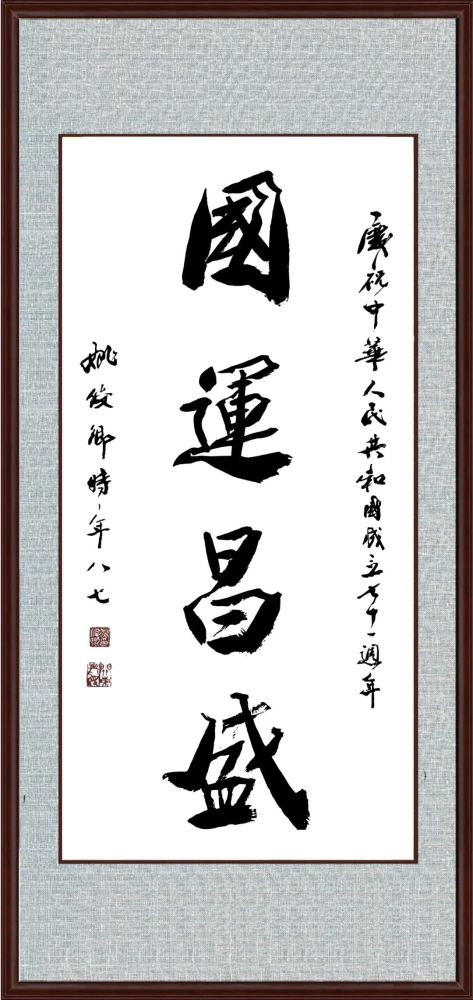 慶祝中華人民共和國成立七十一週年
國運昌盛
姚俊卿時年八七